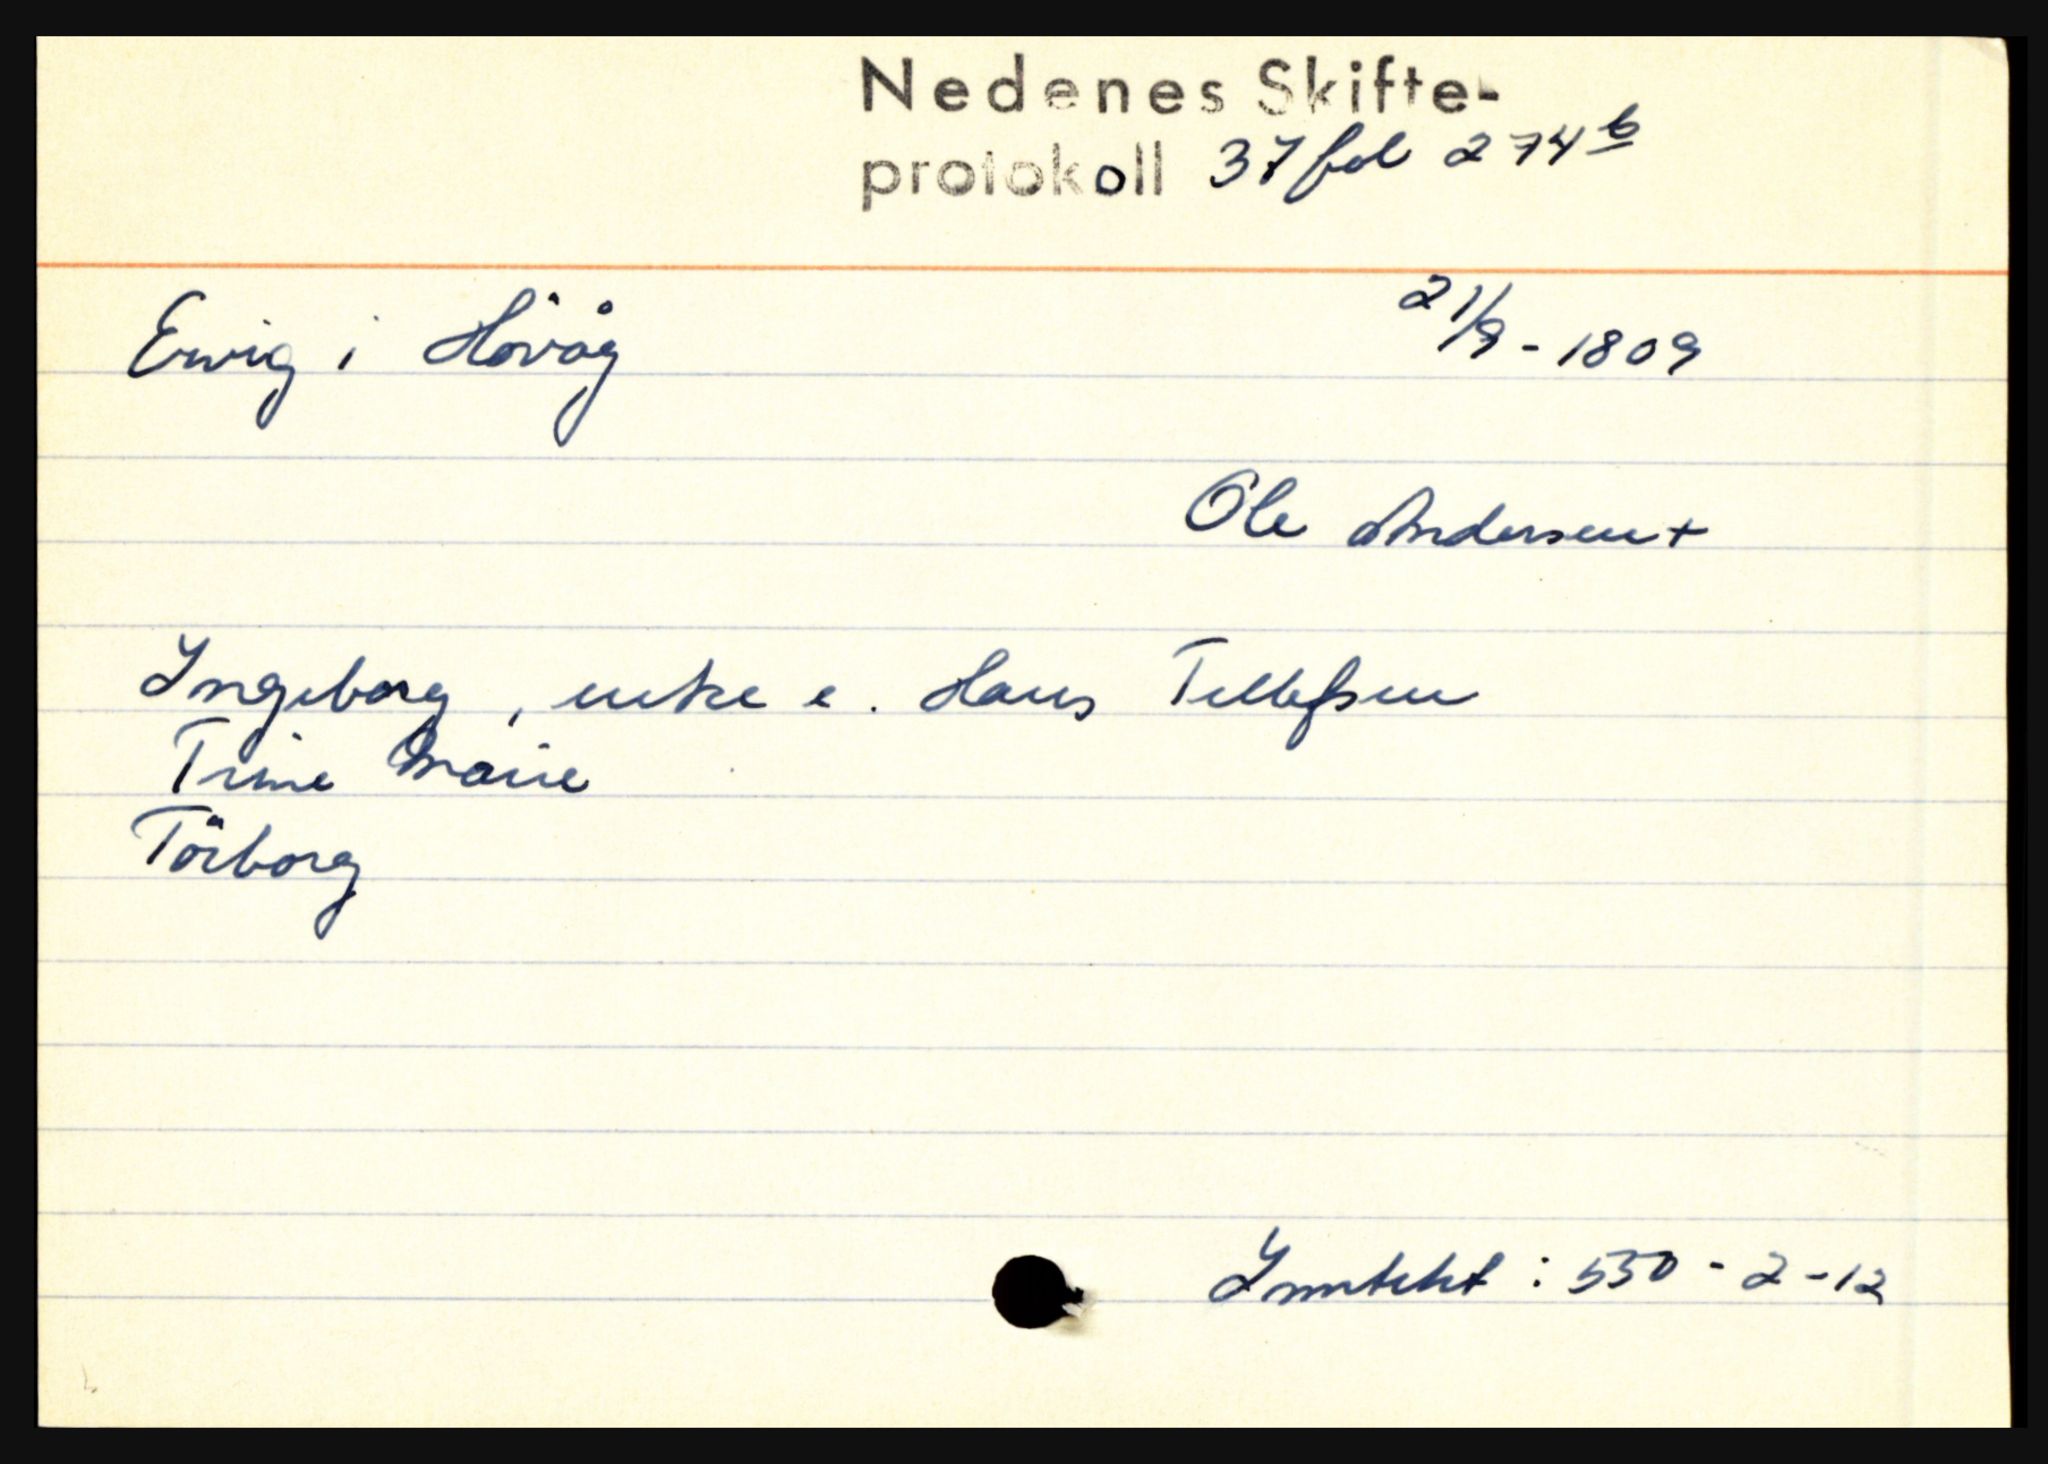 Nedenes Skifte-
protokoll 37 fol 274b
Ervig i Høvåg 21/9-1809
Ole Andersen +
Ingeborg, enke e. Hans Tellefsen
Trine Marie
Torborg
Inntekt: 550-2-12